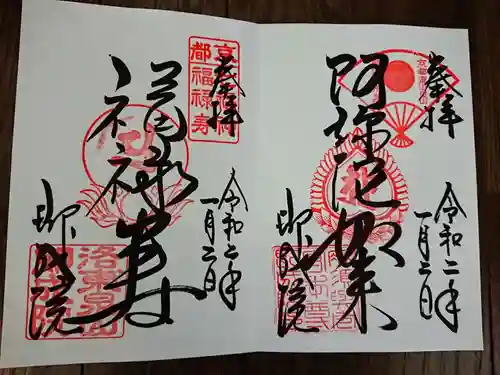 奉拝
阿弥陀如来
令和二年
一月二日
即成院
京都
福禄寿
奉拝
福禄寿
令和二年
一月二日
即成院
洛東泉山
即成院